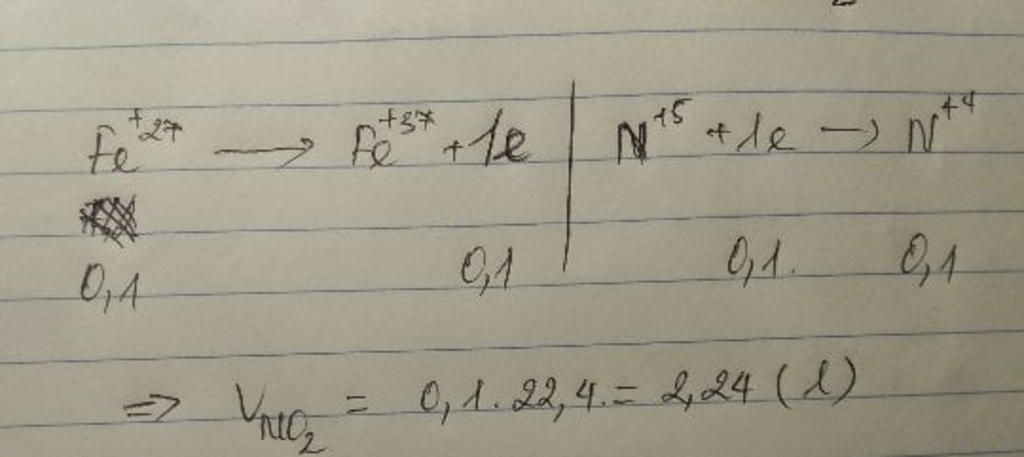 Fe⁺²⁷ → Fe⁺³⁷ + 1e | N⁺⁵ + 1e → N⁺⁴
0,1 0,1 0,1. 0,1
=> V_NO₂ = 0,1.22,4 = 2,24 (l)